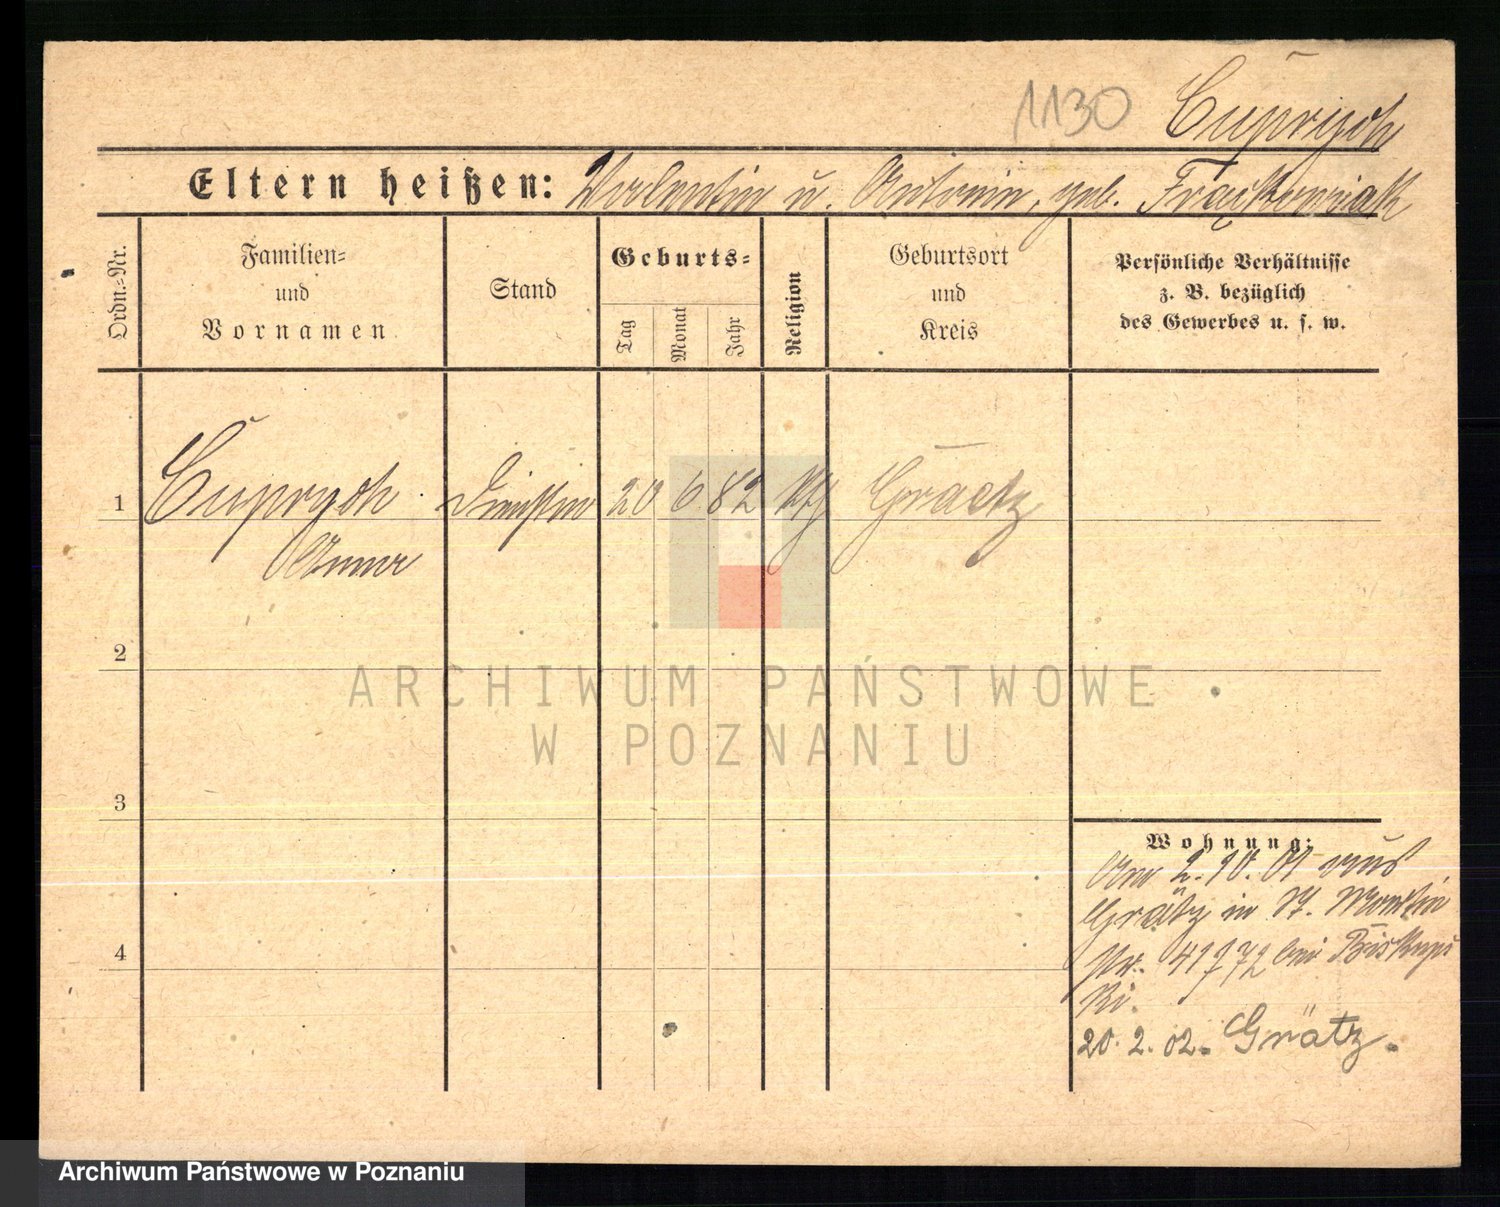 1130 Cuprych
Eltern heißen: Valentin u. Antonie, geb. Frąckowiak
Ordn.-Nr.
Familien-
und
Vornamen
Stand
Geburts-
Tag
Monat
Jahr
Religion
Geburtsort
und
Kreis
Persönliche Verhältnisse
z. B. bezüglich
des Gewerbes u. s. w.
1 Cuprych 20 6 82 kth Graetz
Anna
2
3
4
Wohnung:
2. 10. 01 aus
Grätz in St. Martin
Nr. bei Biskups
ki.
20. 2. 02. Grätz.
ARCHIWUM PAŃSTWOWE
W POZNANIU
Archiwum Państwowe w Poznaniu